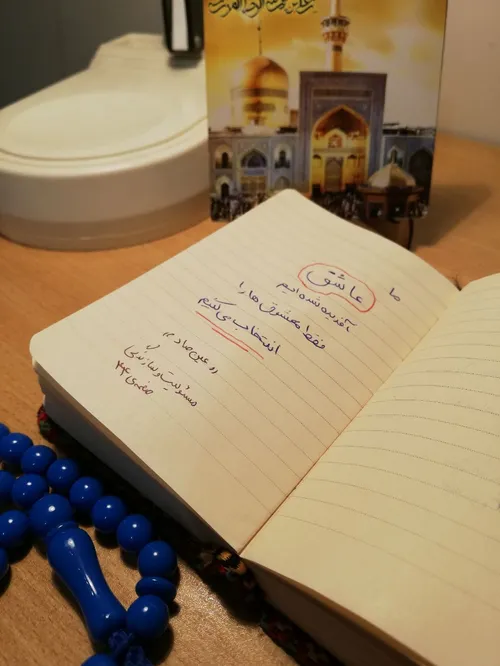 ما عاشق
آفریده شده‌ایم
فقط معشوق ها را
انتخاب می‌کنیم
عین صاد
مسئولیت و سازندگی
صفحه‌ی ۲۴